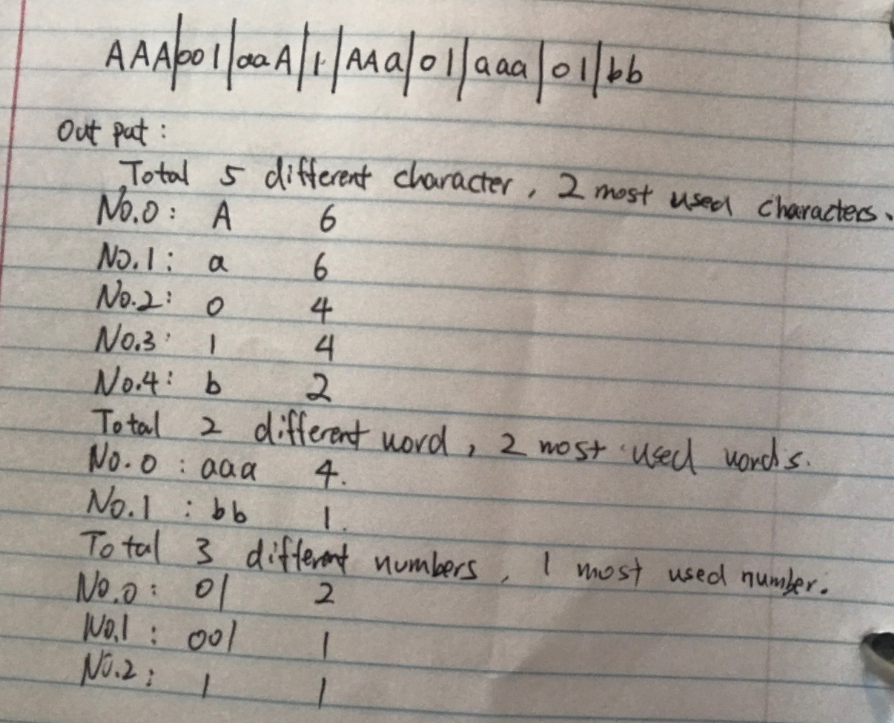 AAA|001|aaA|1|AAa|01|aaa|01|bb
Out put:
Total 5 different character, 2 most used characters.
No.0: A 6
No.1: a 6
No.2: 0 4
No.3: 1 4
No.4: b 2
Total 2 different word, 2 most used words.
No.0: aaa 4.
No.1: bb 1.
Total 3 different numbers, 1 most used number.
No.0: 01 2
No.1: 001 1
No.2: 1 1